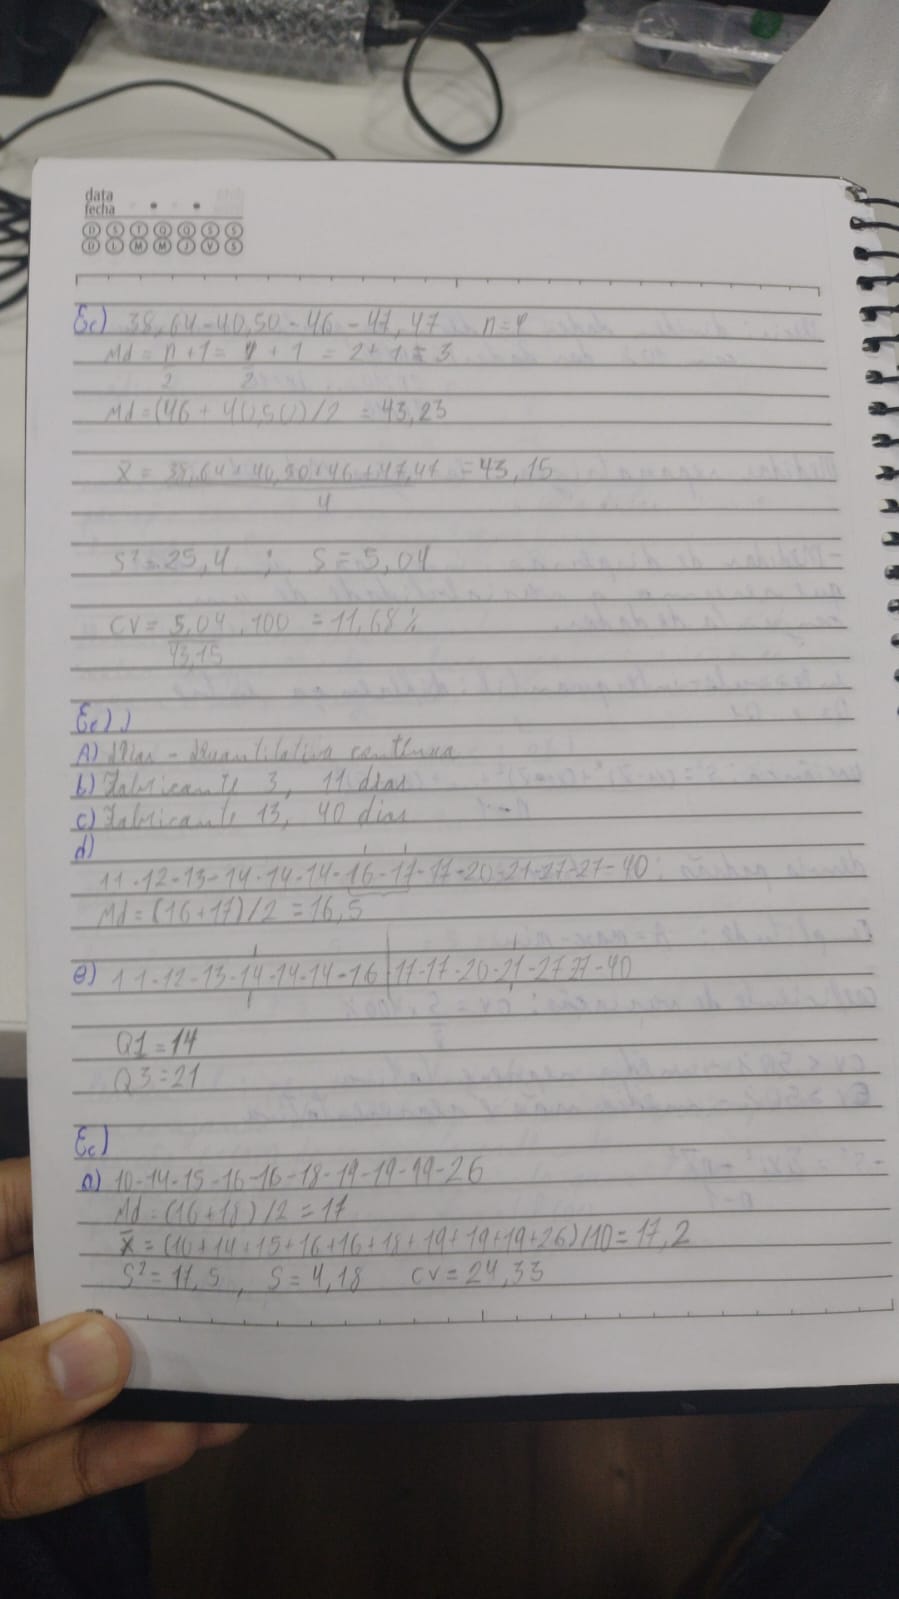 data
fecha
D S T Q Q S S
D L M M J V S
Ex) 38,64-40,50-46-47,47 n=4
Md = n+1 = 4 + 1 = 2+1 = 3
2 2
Md=(46 + 40,50)/2 = 43,23
x̄ = 38,64+40,50+46+47,47 = 43,15
4
S²=25,4 ; S=5,04
CV= 5,04 .100 = 11,68%
43,15
A) Dias - Quantitativa contínua
b) Fabricante 3, 11 dias
c) Fabricante 13, 40 dias
d)
11-12-13-14-14-14-16-17-17-20-21-27-27-40
Md=(16+17)/2 = 16,5
e) 11-12-13-14-14-14-16 17-17-20-21-27 27-40
Q1=14
Q3=21
Ex)
a) 10-14-15-16-16-18-19-19-19-26
Md=(16+18)/2=17
x̄ = (10+14+15+16+16+18+19+19+19+26)/10=17,2
S²=17,5, S=4,18 CV=24,33